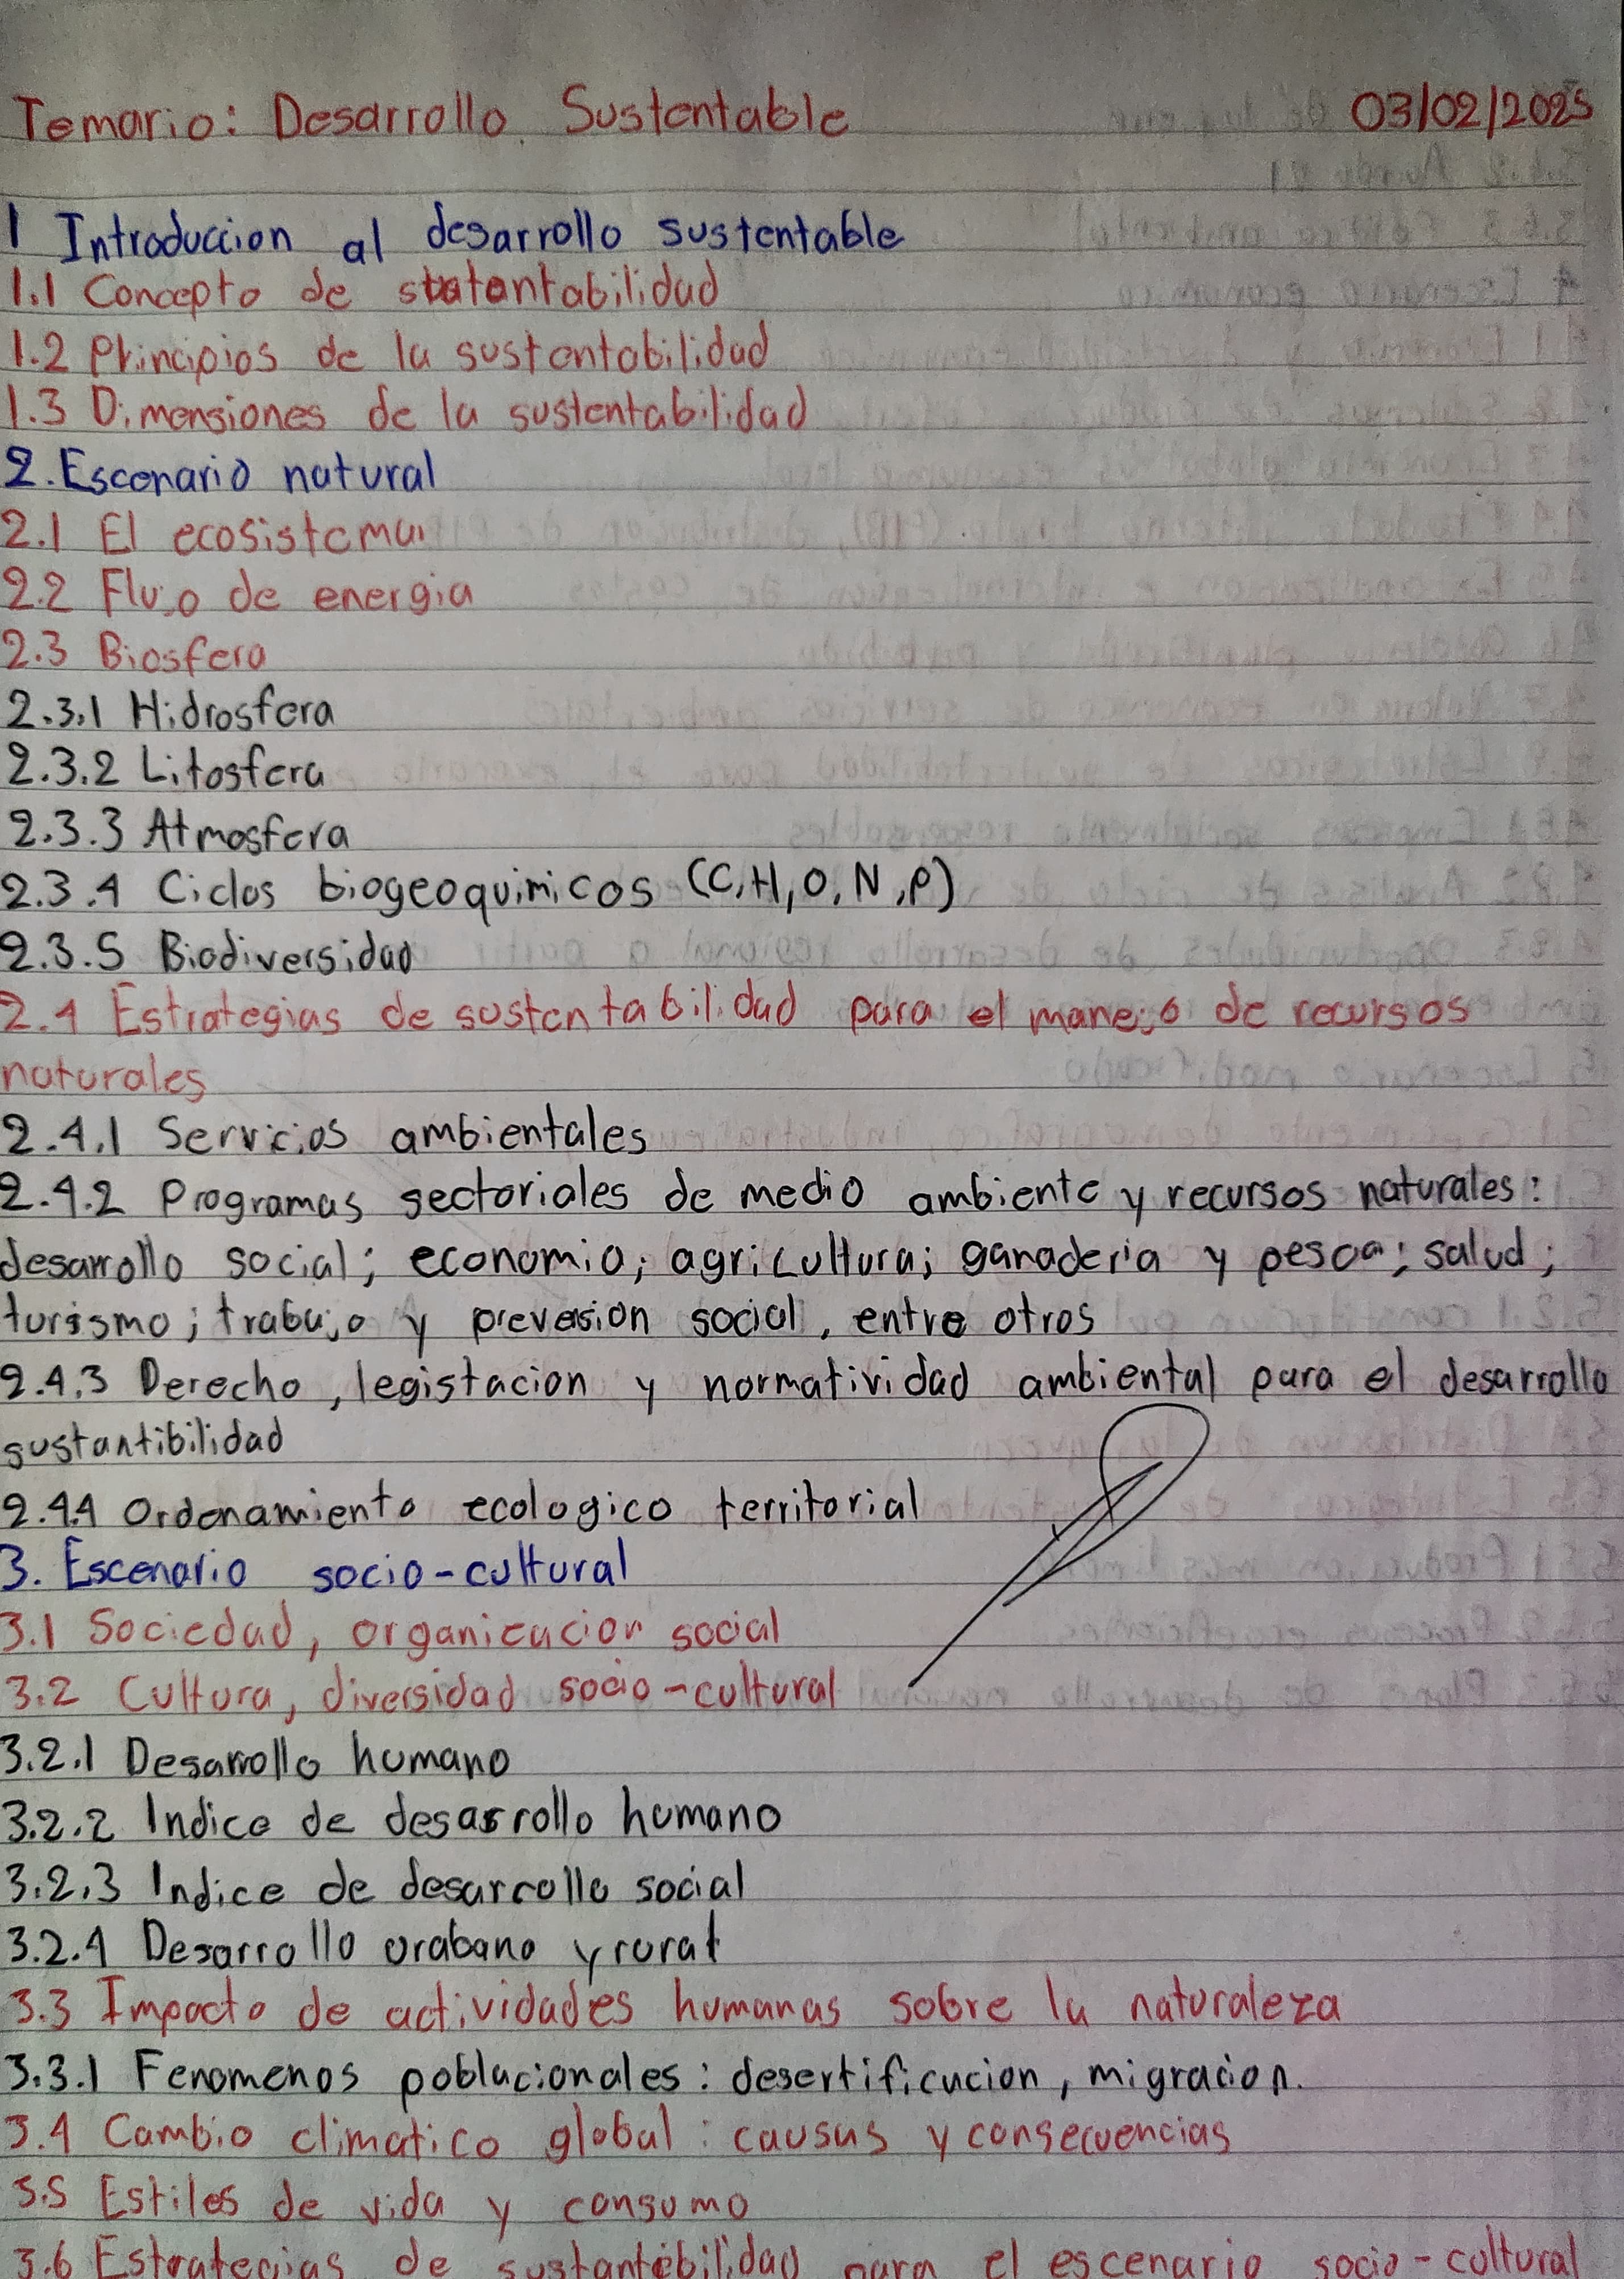 Temario: Desarrollo Sustentable 03/02/2025
1 Introduccion al desarrollo sustentable
1.1 Concepto de statentabilidad
1.2 Principios de la sustentabilidad
1.3 Dimensiones de la sustentabilidad
2. Escenario natural
2.1 El ecosistema
2.2 Flujo de energia
2.3 Biosfera
2.3.1 Hidrosfera
2.3.2 Litosfera
2.3.3 Atmosfera
2.3.4 Ciclos biogeoquimicos (C,H,O,N,P)
2.3.5 Biodiversidad
2.4 Estrategias de sustentabilidad para el manejo de recursos
naturales
2.4.1 Servicios ambientales
2.4.2 Programas sectoriales de medio ambiente y recursos naturales:
desarrollo social; economia; agricultura; ganaderia y pesca; salud;
turismo; trabajo y prevension social, entre otros
2.4.3 Derecho, legistacion y normatividad ambiental para el desarrollo
sustantibilidad
2.4.4 Ordenamiento ecologico territorial
3. Escenario socio-cultural
3.1 Sociedad, organizacion social
3.2 Cultura, diversidad socio-cultural
3.2.1 Desarrollo humano
3.2.2 Indice de desarrollo humano
3.2.3 Indice de desarrollo social
3.2.4 Desarrollo urabano y rural
3.3 Impacto de actividades humanas sobre la naturaleza
3.3.1 Fenomenos poblacionales: desertificacion, migracion.
3.4 Cambio climatico global: causas y consecuencias
3.5 Estilos de vida y consumo
3.6 Estrategias de sustantibilidad para el escenario socio-cultural